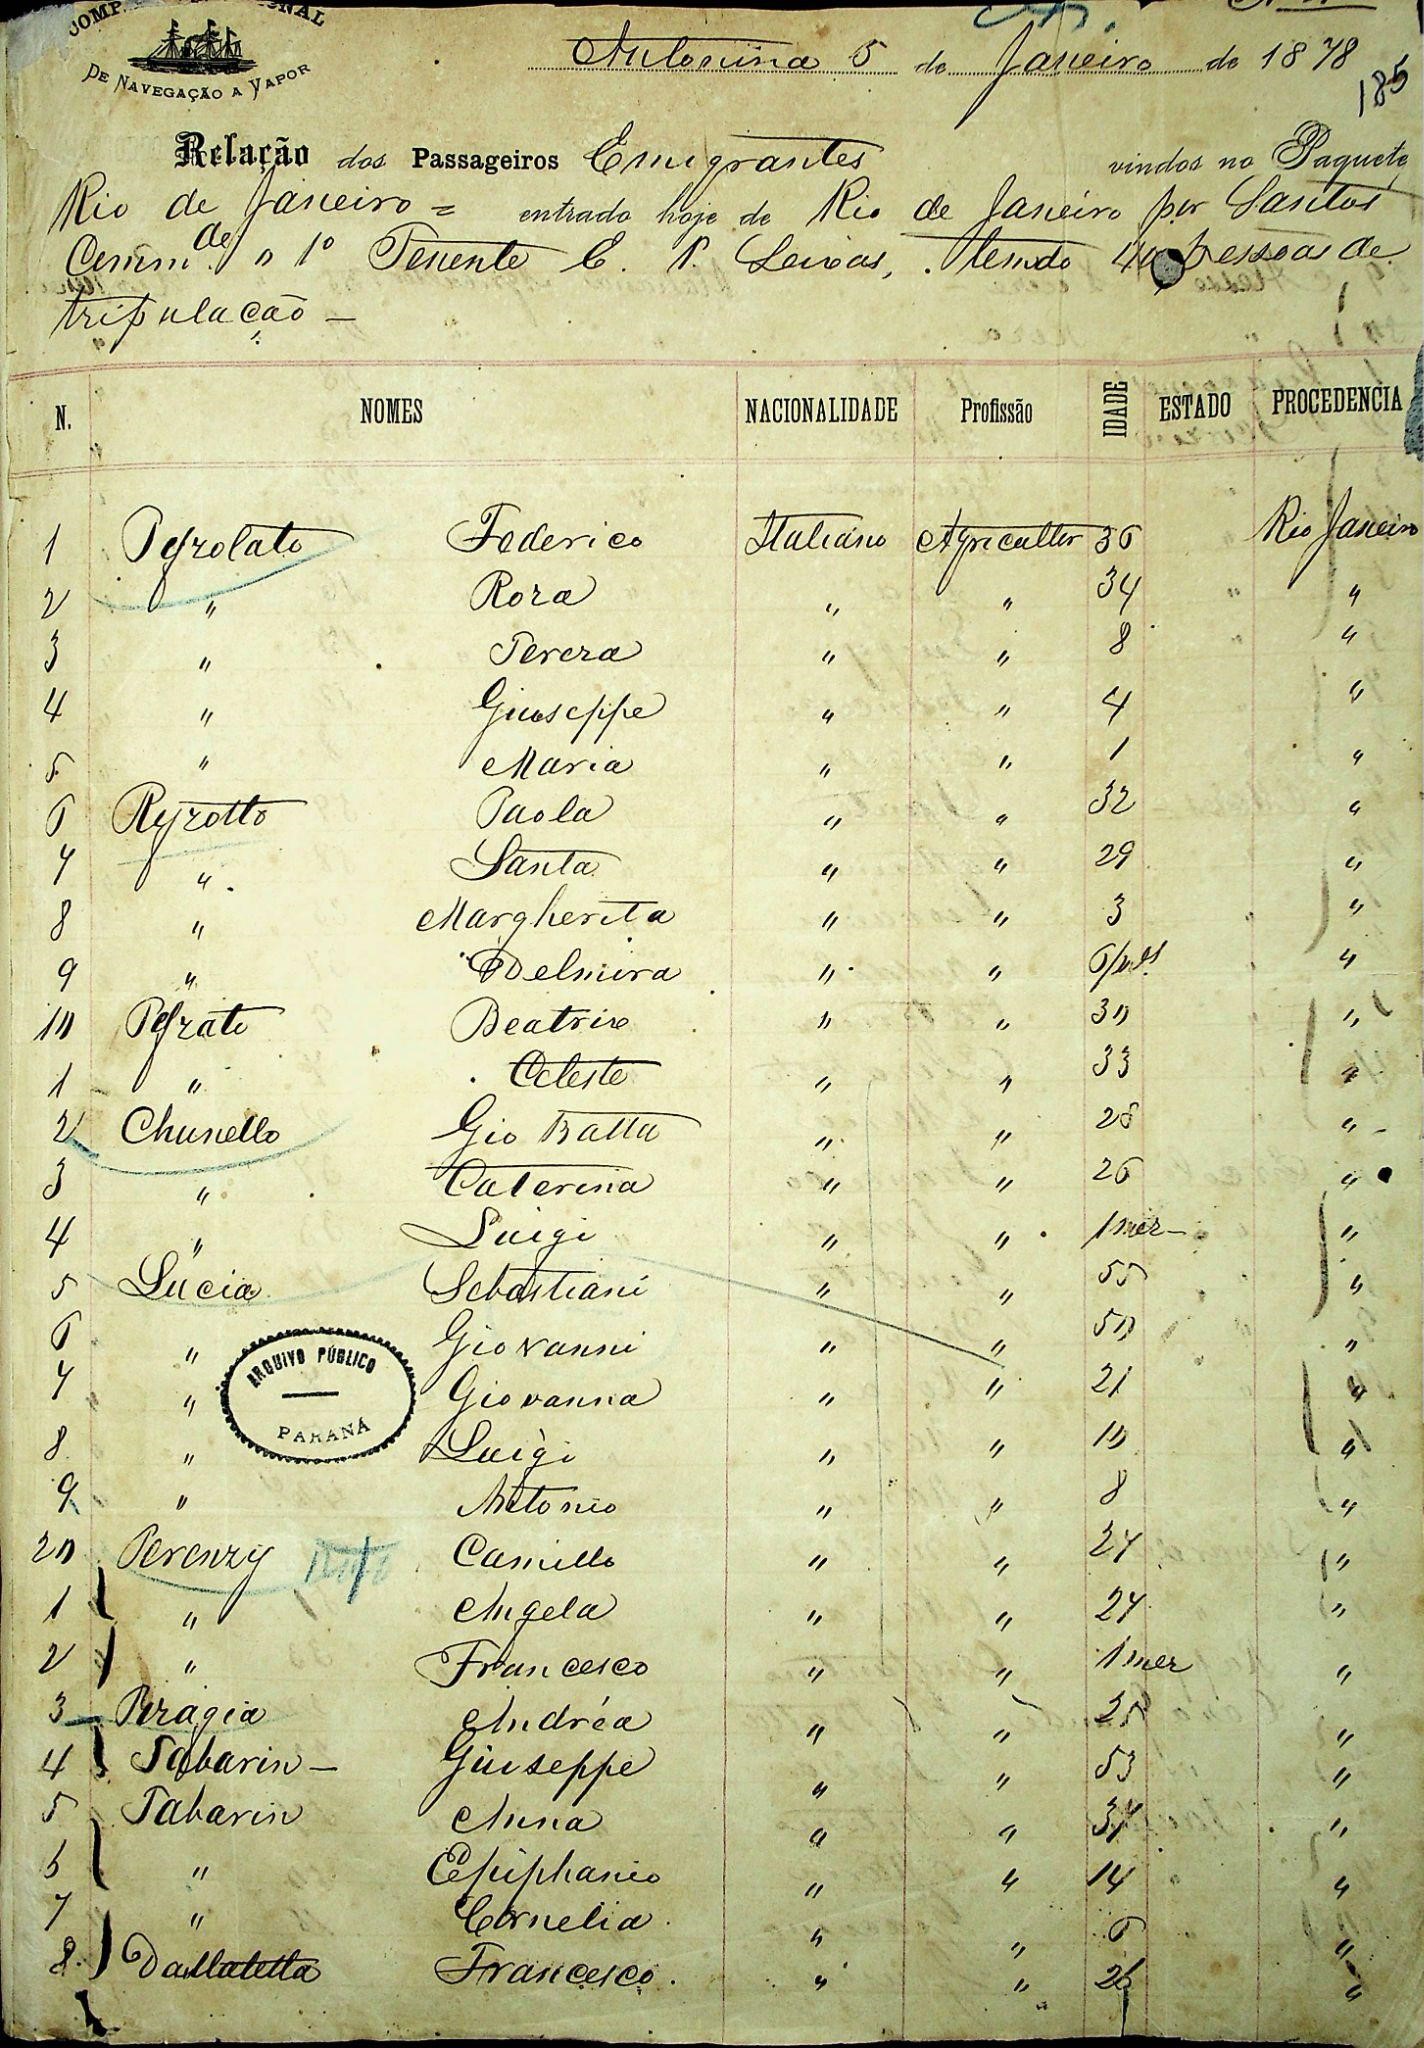 DE NAVEGAÇÃO A VAPOR
Antonina 5 de Janeiro de 1878
185
Relação dos Passageiros Emigrantes vindos no Paquete
Rio de Janeiro = entrado hoje de Rio de Janeiro por Santos
Comm.de o 1º Tenente E. P. Seixas, tendo pessoas de
tripulação —
N. NOMES NACIONALIDADE Profissão IDADE ESTADO PROCEDENCIA
1 Federico Italiano Agricultor 36 Rio Janeiro
2 " Roza " " 34 "
3 " Tereza " " 8 "
4 " Giuseppe " " 4 "
5 " Maria " " 1 "
6 Paola " " 32 "
7 " Santa " " 29 "
8 " Margherita " " 3 "
9 " Delmira " " "
10 Beatrix " " 30 "
1 " Celeste " " 33 "
2 Chunello Gio Batta " " 28 "
3 " Caterina " " 26 "
4 " Luigi " " 1 mez "
5 Lucia Sebastiani " " 55 "
6 " Giovanni " " 50 "
7 " Giovanna " " 21 "
8 " Luigi " " 10 "
9 " Antonio " " 8 "
20 Perenzy Camillo " " 27 "
1 " Angela " " 24 "
2 " Francesco " " 1 mez "
3 Andréa " " 25 "
4 Tabarin — Giuseppe " " 53 "
5 Tabarin Anna " " "
6 " Epiphanio " " 14 "
7 " Cornelia " " 6 "
8 Francesco " " 26 "
ARQUIVO PÚBLICO
PARANÁ